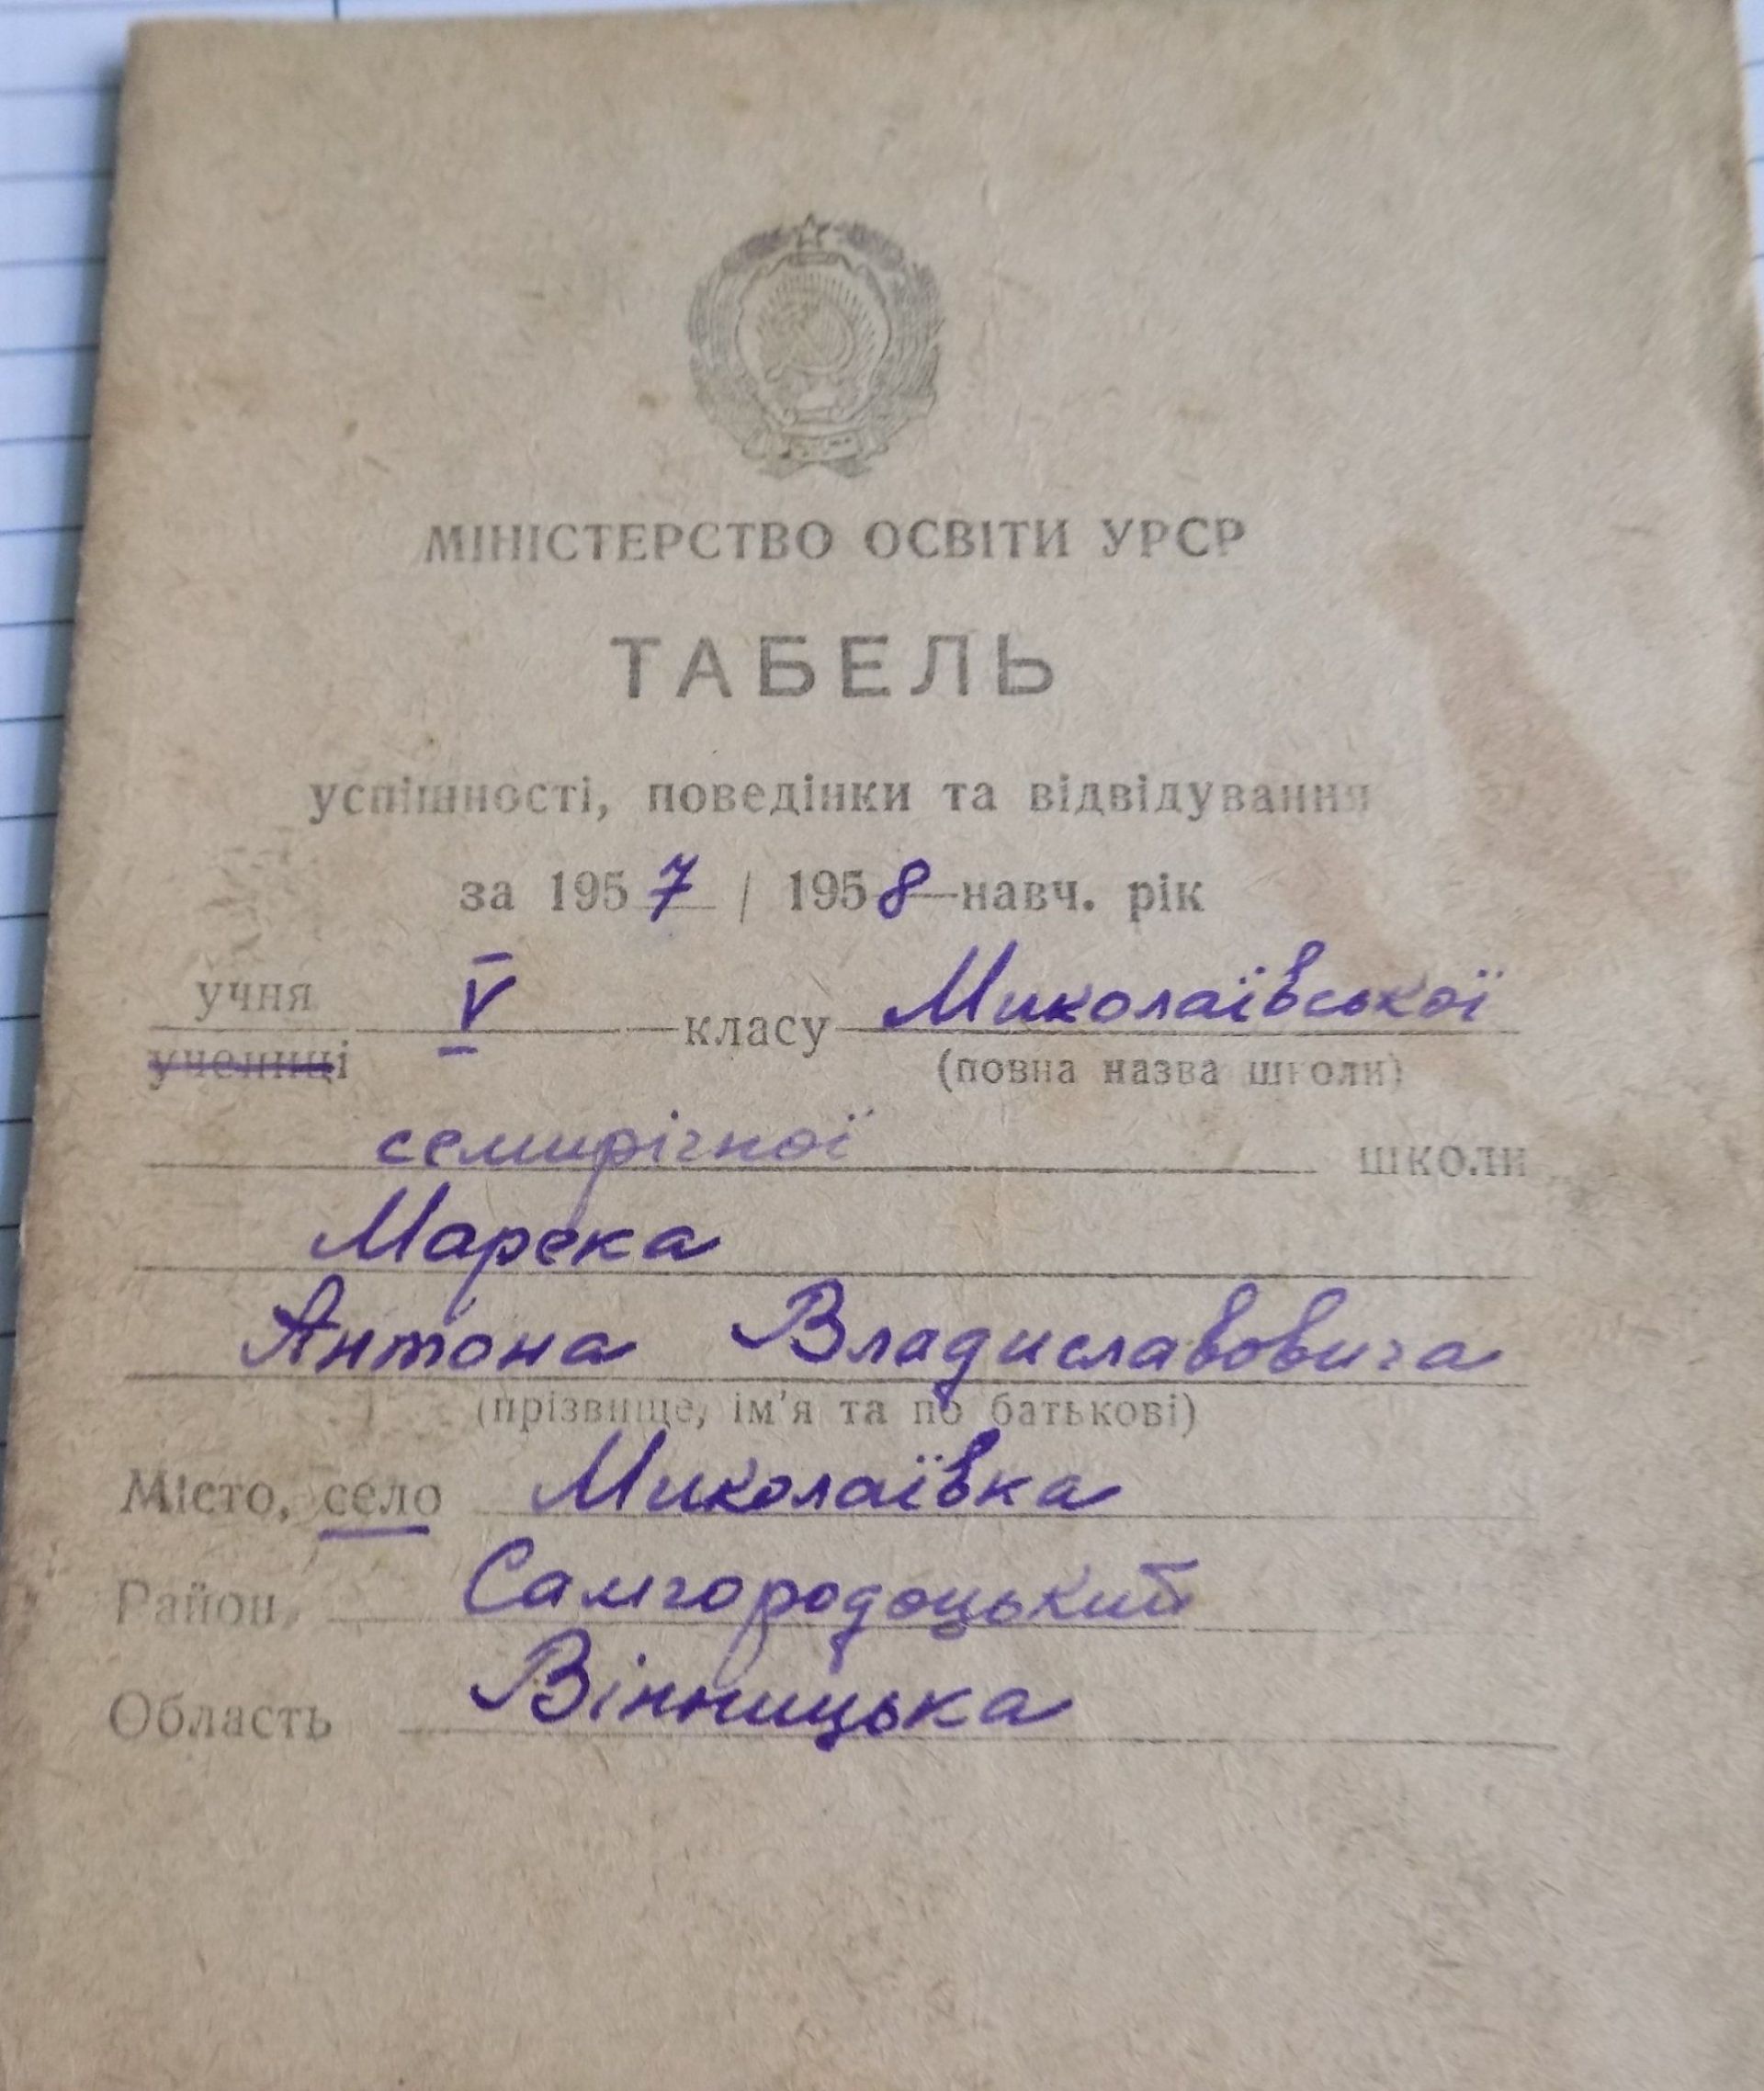 МІНІСТЕРСТВО ОСВІТИ УРСР
ТАБЕЛЬ
успішності, поведінки та відвідування
за 1957 / 1958 навч. рік
учня V класу Миколаївської
учениці (повна назва школи)
семирічної школи
Марека
Антона Владиславовича
(прізвище, ім'я та по батькові)
Місто, село Миколаївка
Район Самгородоцький
Область Вінницька